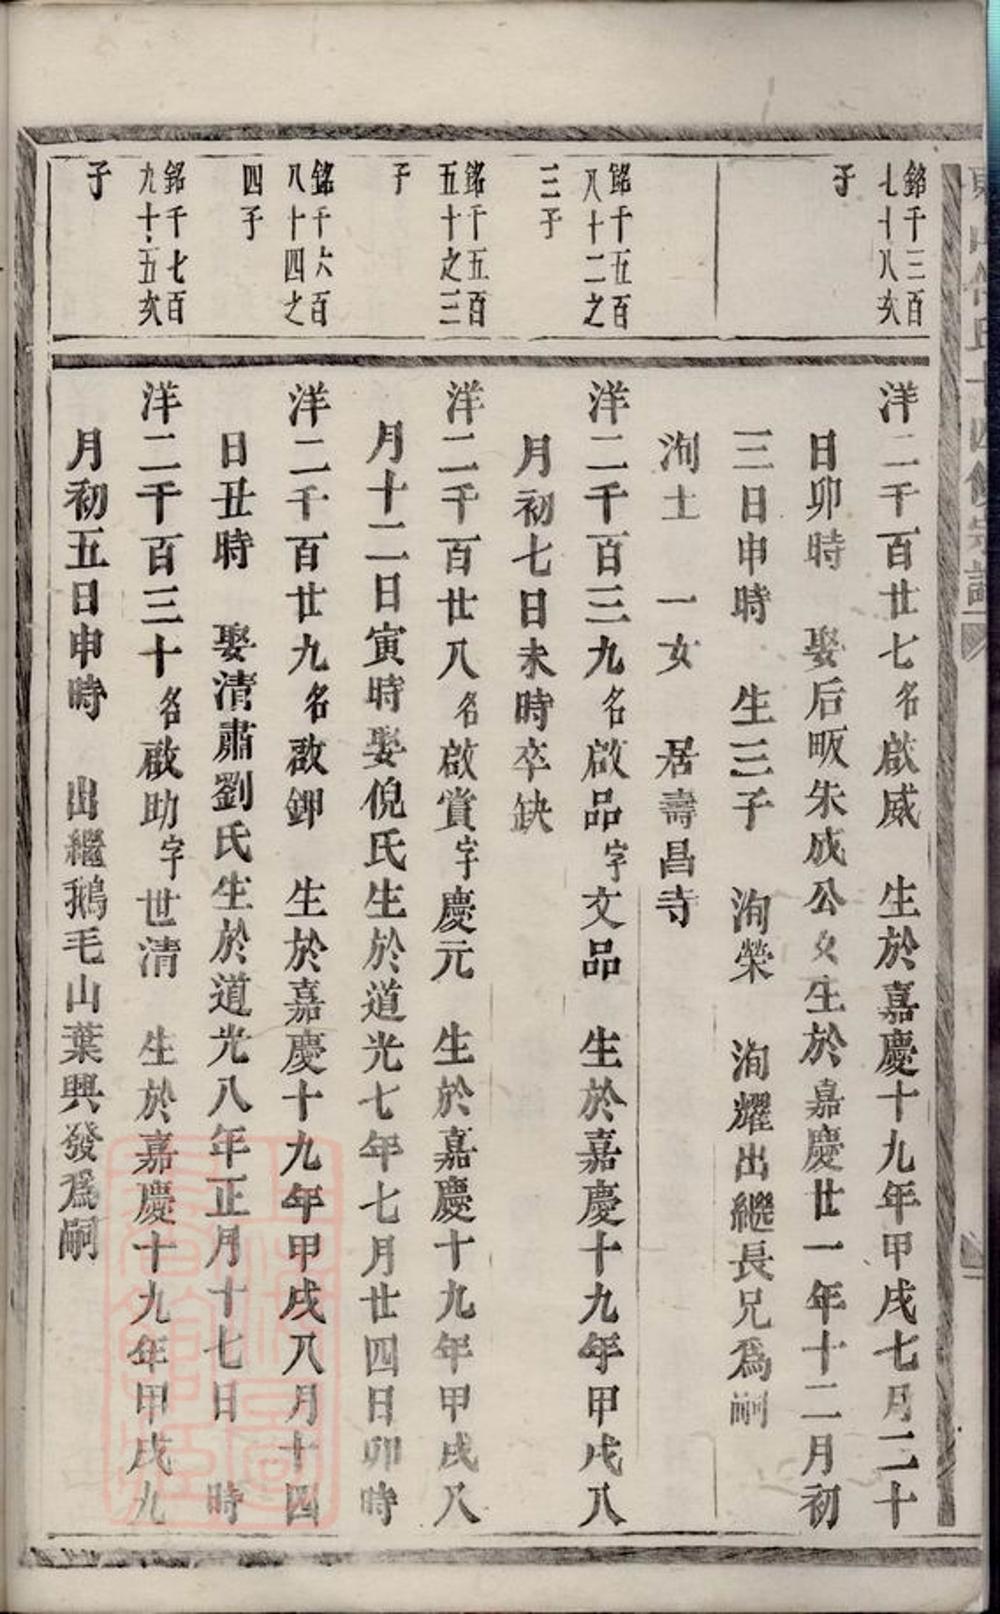 銘千三百
七十八亥
子
銘千五百
八十二之
三子
銘千五百
五十之三
子
銘千六百
八十四之
四子
銘千七百
九十五亥
子
洋二千百廿七名啟威　生於嘉慶十九年甲戌七月二十
日卯時　娶后畈朱成公女生於嘉慶廿一年十二月初
三日申時　生三子　洵榮　洵耀出繼長兄為嗣
洵土　一女　居壽昌寺
洋二千百三九名啟品字文品　生於嘉慶十九年甲戌八
月初七日未時卒缺
洋二千百廿八名啟賞字慶元　生於嘉慶十九年甲戌八
月十二日寅時娶倪氏生於道光七年七月廿四日卯時
洋二千百廿九名啟鉀　生於嘉慶十九年甲戌八月十四
日丑時　娶清肅劉氏生於道光八年正月十七日　時
洋二千百三十名啟助字世清　生於嘉慶十九年甲戌九
月初五日申時　出繼鵝毛山葉興發爲嗣